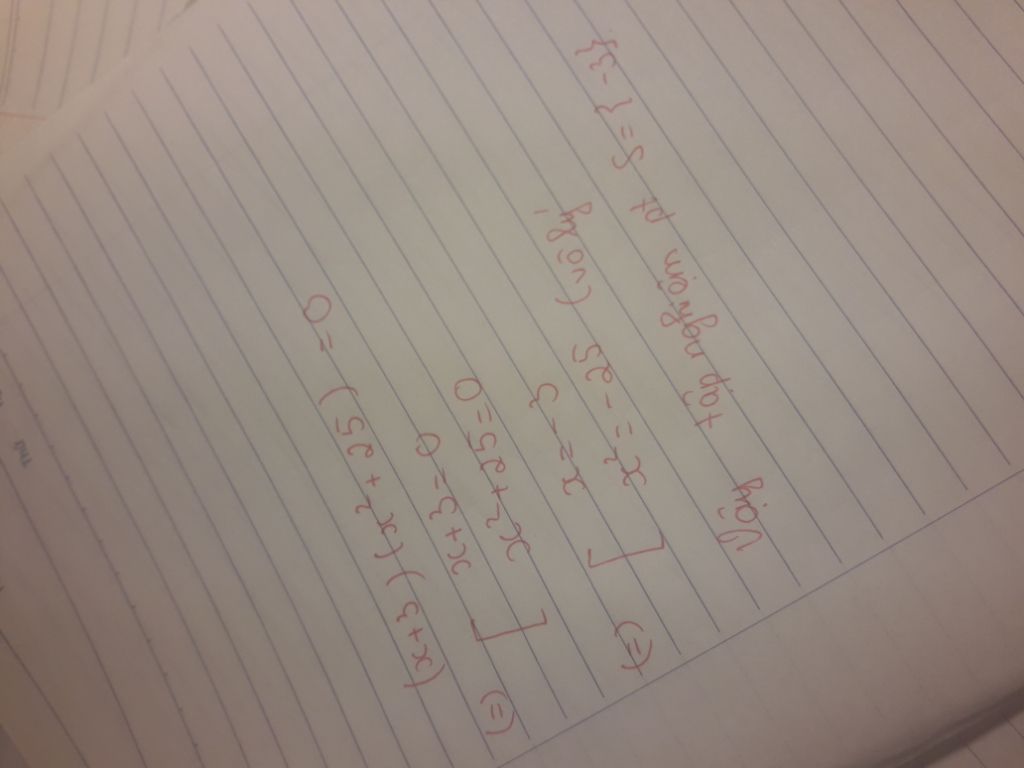 (x+3)(x²+25) = 0
(=) [ x+3=0
x²+25=0
(=) [ x=-3
x²=-25 (vô lý
Vậy tập nghiệm pt S={-3}